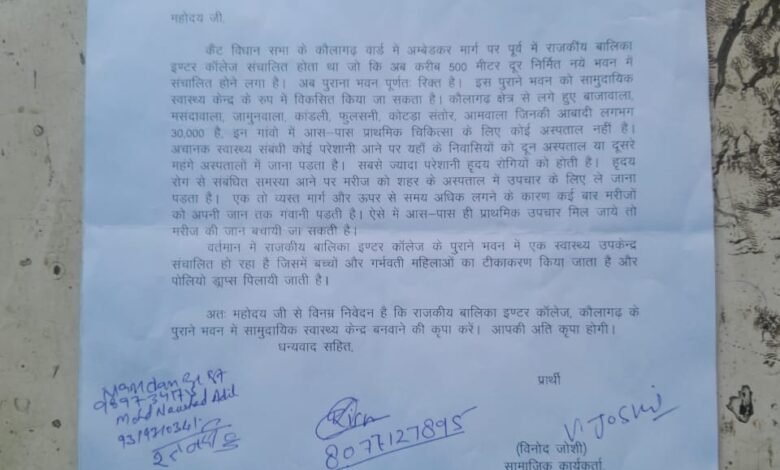 महोदय जी,
कैंट विधान सभा के कौलागढ़ वार्ड में अम्बेडकर मार्ग पर पूर्व में राजकीय बालिका
इण्टर कॉलेज संचालित होता था जो कि अब करीब 500 मीटर दूर निर्मित नये भवन में
संचालित होने लगा है। अब पुराना भवन पूर्णतः रिक्त है। इस पुराने भवन को सामुदायिक
स्वास्थ्य केन्द्र के रुप में विकसित किया जा सकता है। कौलागढ़ क्षेत्र से लगे हुए बाजावाला,
मसंदावाला, जामुनवाला, कांडली, फुलसनी, कोटडा संतोर, आमवाला जिनकी आबादी लगभग
30,000 है, इन गांवो में आस-पास प्राथमिक चिकित्सा के लिए कोई अस्पताल नहीं है।
अचानक स्वास्थ्य संबंधी कोई परेशानी आने पर यहाँ के निवासियों को दून अस्पताल या दूसरे
महंगे अस्पतालों में जाना पड़ता है। सबसे ज्यादा परेशानी हृदय रोगियों को होती है। हृदय
रोग से संबंधित समस्या आने पर मरीज को शहर के अस्पताल में उपचार के लिए ले जाना
पड़ता है। एक तो व्यस्त मार्ग और ऊपर से समय अधिक लगने के कारण कई बार मरीजों
को अपनी जान तक गंवानी पड़ती है। ऐसे में आस-पास ही प्राथमिक उपचार मिल जाये तो
मरीज की जान बचायी जा सकती है।
वर्तमान में राजकीय बालिका इण्टर कॉलेज के पुराने भवन में एक स्वास्थ्य उपकेन्द्र
संचालित हो रहा है जिसमें बच्चों और गर्भवती महिलाओं का टीकाकरण किया जाता है और
पोलियो ड्राप्स पिलायी जाती है।
अतः महोदय जी से विनम्र निवेदन है कि राजकीय बालिका इण्टर कॉलेज, कौलागढ़ के
पुराने भवन में सामुदायिक स्वास्थ्य केन्द्र बनवाने की कृपा करें। आपकी अति कृपा होगी।
धन्यवाद सहित,
प्रार्थी
Mohd Naushad Adil
8077127895
V JOSHI
(विनोद जोशी)
सामाजिक कार्यकर्ता